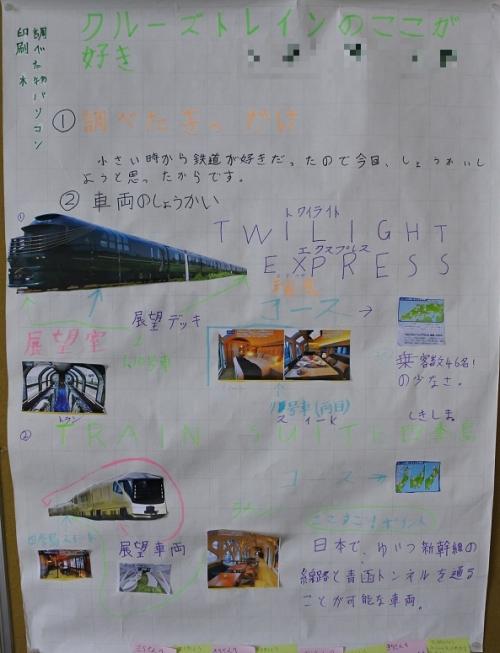 クルーズトレインのここが
好き
調べた物パソコン
印刷 本
① 調べたきっかけ
小さい時から鉄道が好きだったので今回、しょうかいし
ようと思ったからです。
② 車両のしょうかい
①
トワイライト
TWILIGHT
エクスプレス
EXPRESS
コース →
展望室
展望デッキ
乗客数46名!
の少なさ。
号車(両目)
スイート
しきしま
② トラン
TRAIN SUITE 四季島
コース →
展望車両
ここすごい!ポイント
日本で、ゆいつ新幹線の
線路と青函トンネルを通る
ことが可能な車両。